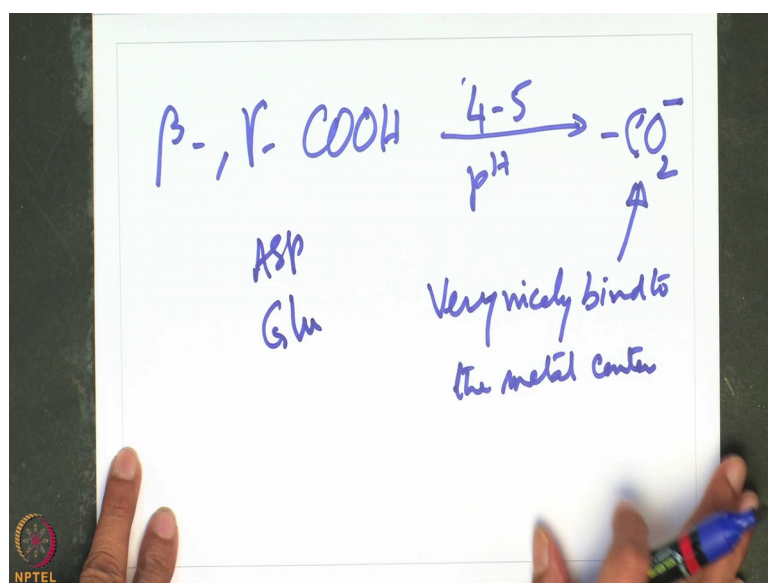 β-, γ- COOH 4-5 pH → -CO₂⁻
Asp
Glu
Very nicely bind to
the metal center
NPTEL